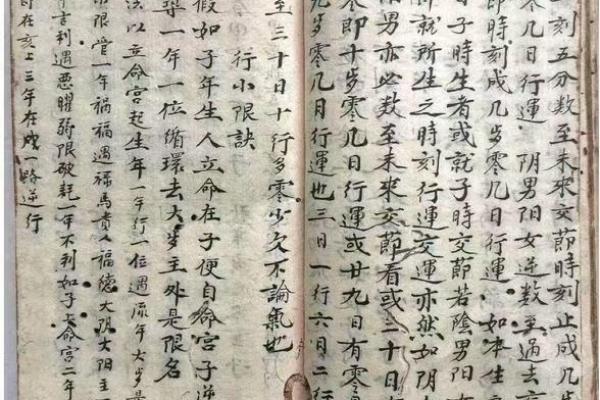 一刻五分数至未來交節時刻止成几岁
零几日行運 阴男阳女逆数至過去
節時刻成几岁零几日行運 如本生
日子時生者或就子時交節若陰男阳
即就所生之時刻行運交運亦然如阴
男亦必数至未來交節看或三十日
零即十岁零几日行運或廿九日有零
九岁零几月行運也三日一行六日二行
至三十日十行多零少欠不論氣也
行小限訣
假如子年生人立命在子便自命宮子逆
一年一位循環去太岁主外是限名
法以立命宮起生年一年行一位遇流年太岁
限管一年禍福遇禄馬貴人福德太阴太阳主
吉利遇惡曜弱限破耗一年不利如子命宮二年
在亥上三年在戌一路逆行